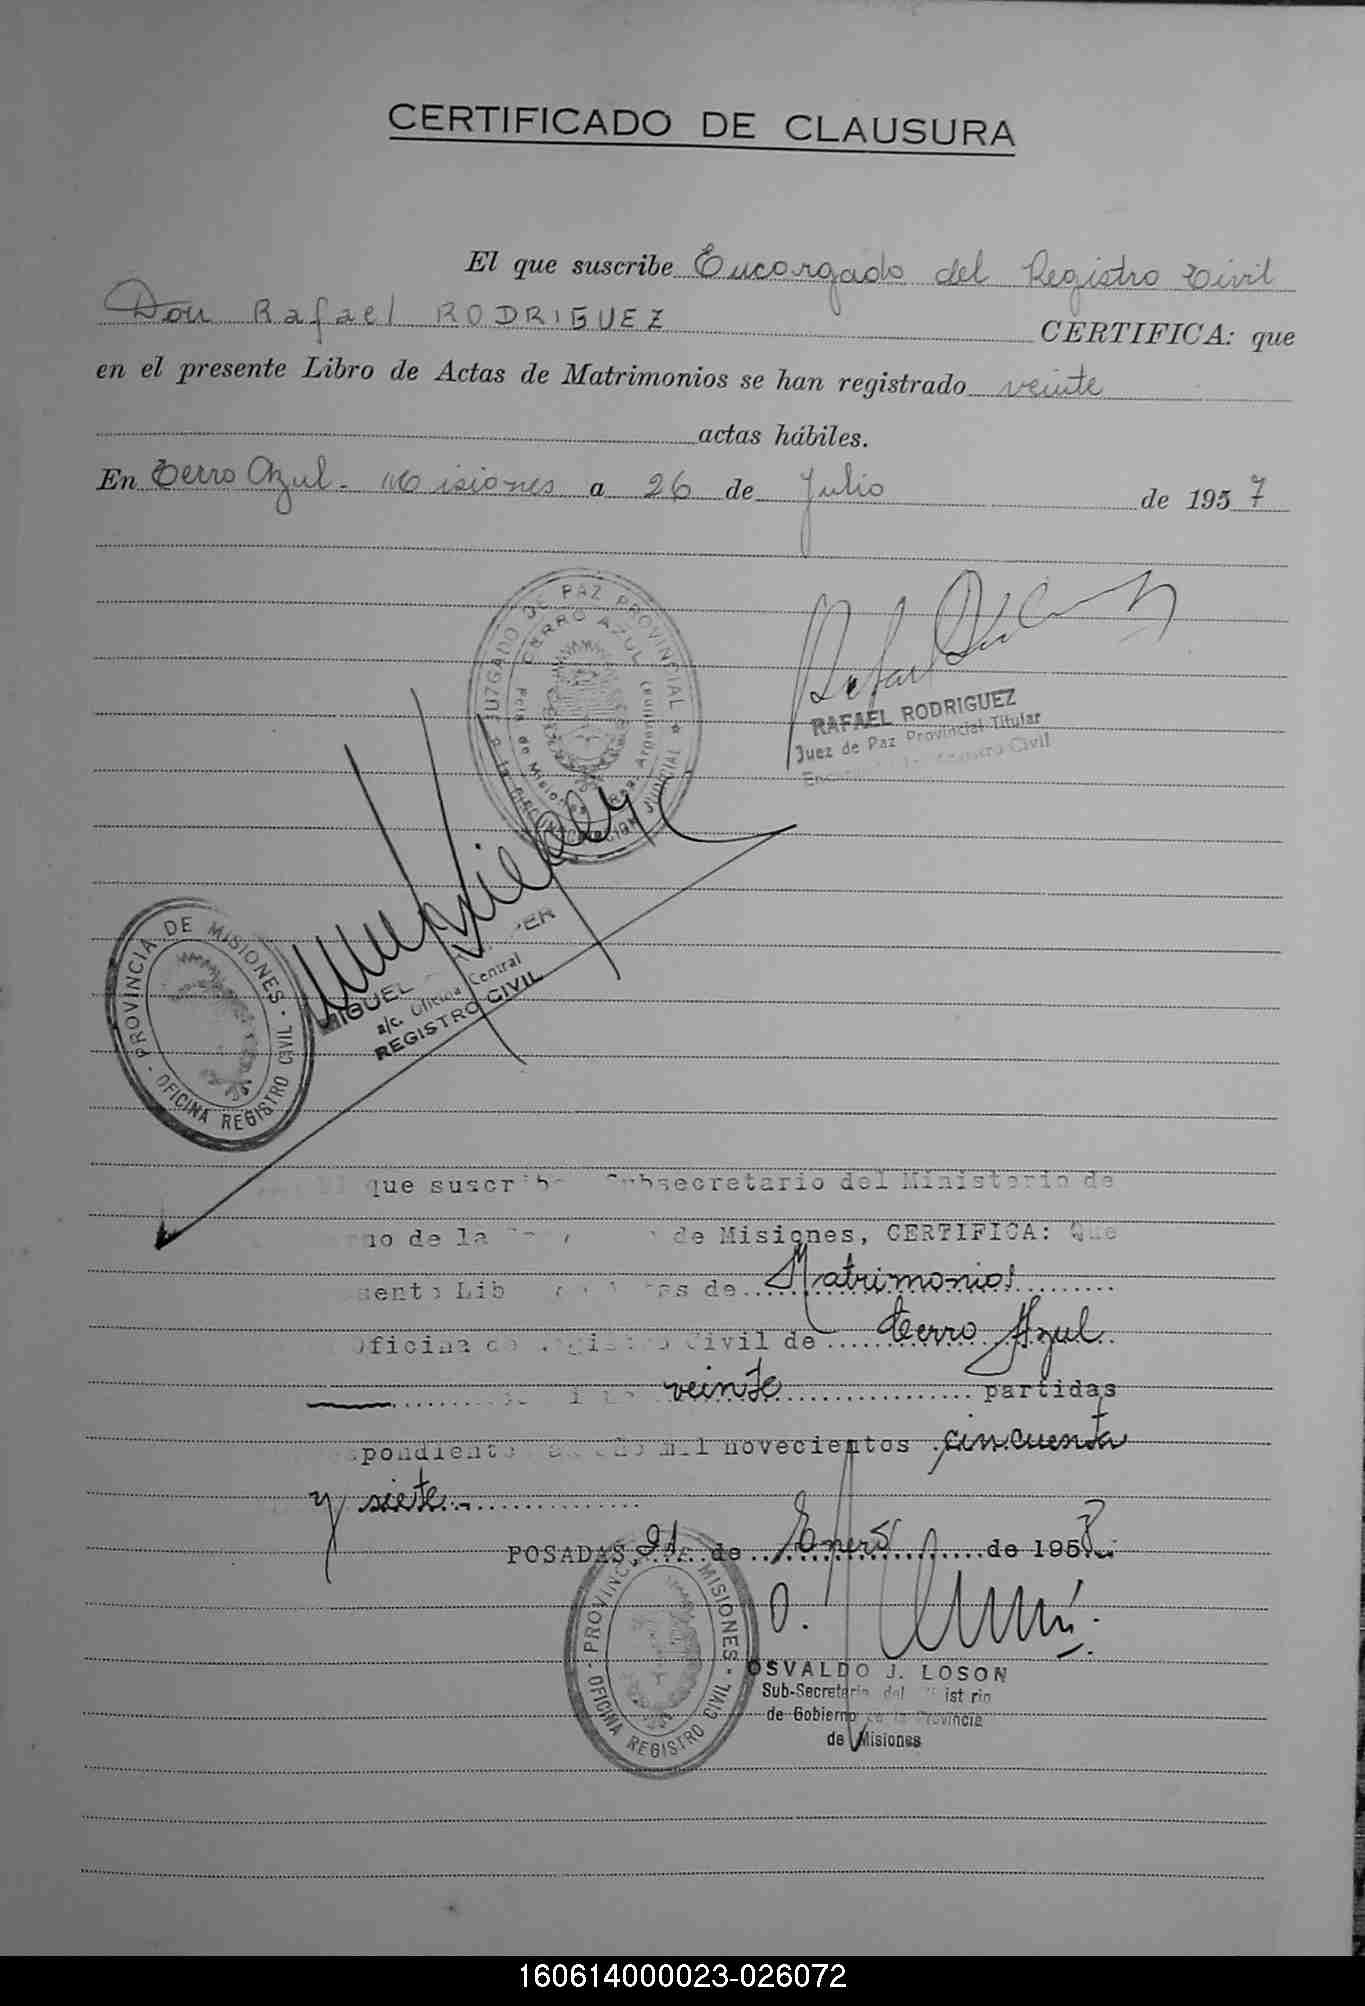 CERTIFICADO DE CLAUSURA
El que suscribe Encargado del Registro Civil
Don Rafael RODRIGUEZ CERTIFICA: que
en el presente Libro de Actas de Matrimonios se han registrado veinte
actas hábiles.
En Cerro Azul - Misiones a 26 de Julio de 1957
JUZGADO DE PAZ PROVINCIAL
CERRO AZUL
RAFAEL RODRIGUEZ
Juez de Paz Provincial Titular
Registro Civil
PROVINCIA DE MISIONES
OFICINA REGISTRO CIVIL
MIGUEL
a/c. Oficina Central
REGISTRO CIVIL
que suscribe Subsecretario del Ministerio de
no de la de Misiones, CERTIFICA: Que
sente Lib as de Matrimonios
Oficina de Registro Civil de Cerro Azul
veinte partidas
spondiente año mil novecientos cincuenta
y siete.-
POSADAS, de Enero de 1958.
PROVINCIA MISIONES
OFICINA REGISTRO CIVIL
OSVALDO J. LOSON
Sub-Secretario del
de Gobierno de la Provincia
de Misiones
160614000023-026072